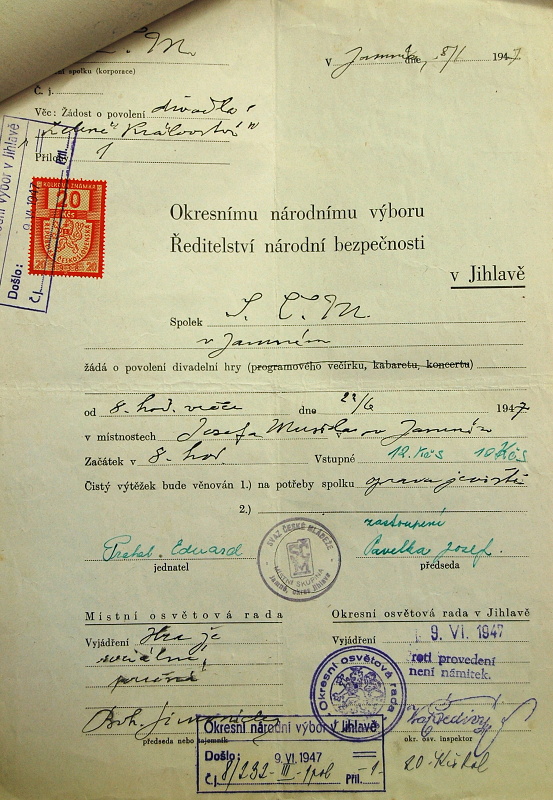 Č. M.
spolku (korporace)
V Jamném, dne 8/1 1947
Č. j.
Věc: Žádost o povolení divadla
Království"
Přílohy 1
KOLKOVÁ ZNÁMKA
20
Kčs
ČESKOSLOVENSKÁ
20 20
ní výbor v Jihlavě
Došlo: 9. VI. 1947
Čj. Příl.
Okresnímu národnímu výboru
Ředitelství národní bezpečnosti
v Jihlavě
Spolek S. Č. M.
v Jamném
žádá o povolení divadelní hry (programového večírku, kabaretu, koncertu)
od 8. hod. večer dne 22/6 1947
v místnostech Josefa Musila v Jamném
Začátek v 8. hod. Vstupné 12. Kčs 10 Kčs
Čistý výtěžek bude věnován 1.) na potřeby spolku oprava jeviště
2.)
zastoupení
Eduard Pavelka Josef.
jednatel předseda
SVAZ ČESKÉ MLÁDEŽE
MÍSTNÍ SKUPINA
Jamné, okres Jihlava
Místní osvětová rada
Vyjádření Hra je
sociálně
Boh.
předseda nebo tajemník
Okresní osvětová rada v Jihlavě
Vyjádření 9. VI. 1947
roti provedení
není námitek.
Okresní osvětová rada
okr. osv. inspektor
Okresní národní výbor v Jihlavě
Došlo: 9. VI. 1947
Čj. 8/232-III-1 Příl. -1-
20 Kčs kol